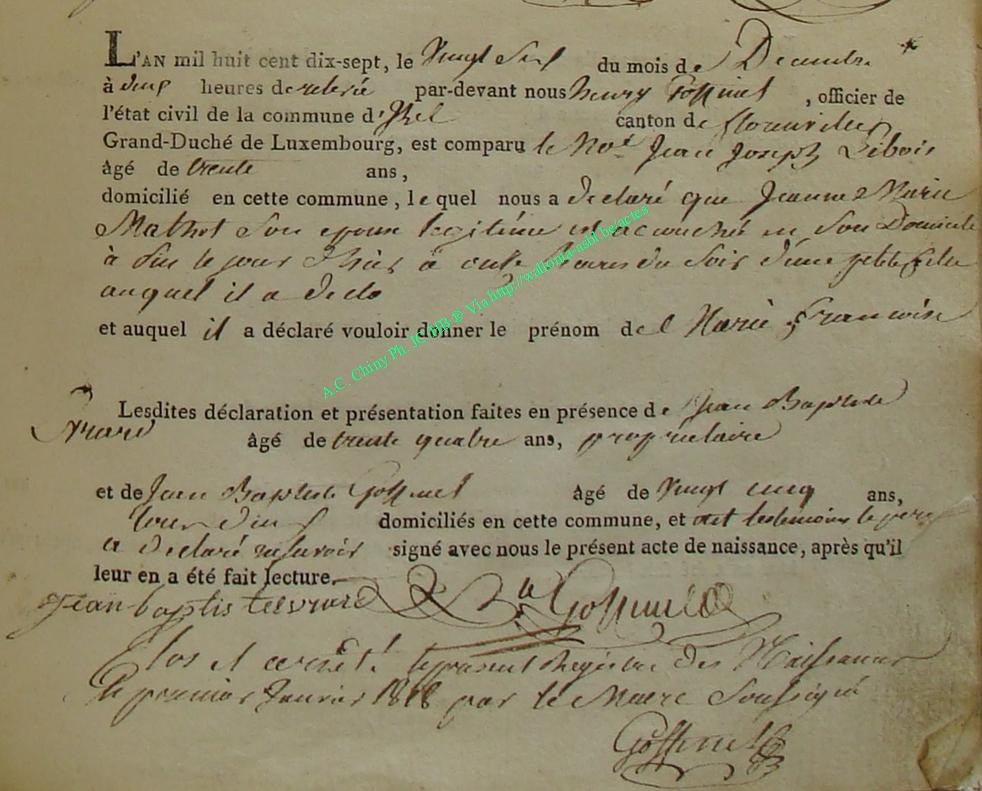 L'AN mil huit cent dix-sept, le vingt du mois de Decembre
à deux heures de relevée par-devant nous henry Goffinet, officier de
l'état civil de la commune d'Izel canton de florenville
Grand-Duché de Luxembourg, est comparu le Jean Joseph Libois
âgé de trente ans,
domicilié en cette commune, lequel nous a declaré que Jeanne Marie
Mathot Son epouse legitime est acouchée en Son Domicile
à le jour à onze heures du Soir d'une petite fille
auquel il a decla
et auquel il a déclaré vouloir donner le prénom de Marie Francoise
Lesdites déclaration et présentation faites en présence de Jean Baptiste
Evrard âgé de trente quatre ans, proprietaire
et de Jean Baptiste Goffinet âgé de vingt cinq ans,
tous deux domiciliés en cette commune, et ont les temoins le pere
a declaré ne savoir signé avec nous le présent acte de naissance, après qu'il
leur en a été fait lecture.
Jean baptiste evrard Goffinet
Clos et arrêté le present Registre des Naissances
le premier Janvier 1818 par le Maire Soussigné
Goffinet
A.C. Chiny Ph. JCMB ® Via http://wallonia-asbl.be/actes